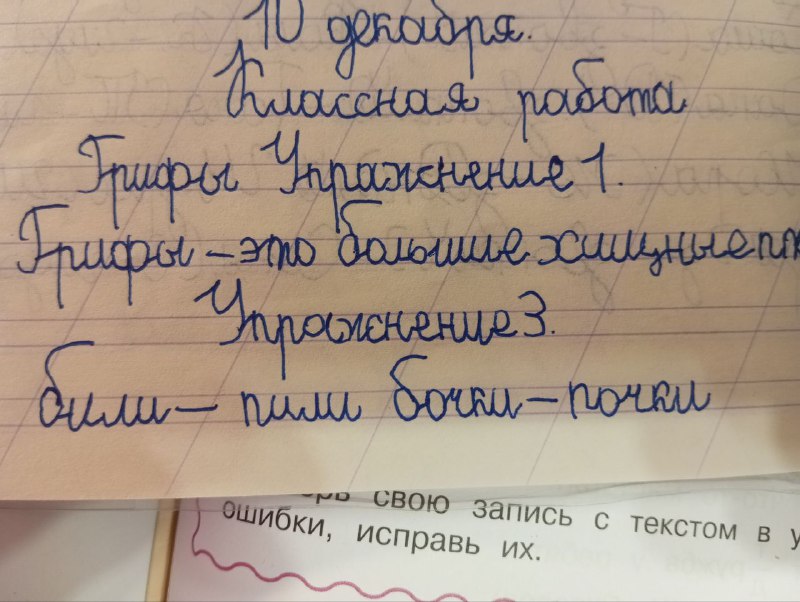 10 декабря.
Классная работа
Грифы Упражнение 1.
Грифы – это большие хищные
Упражнение 3.
били – пили бочки – почки
свою запись с текстом в
ошибки, исправь их.